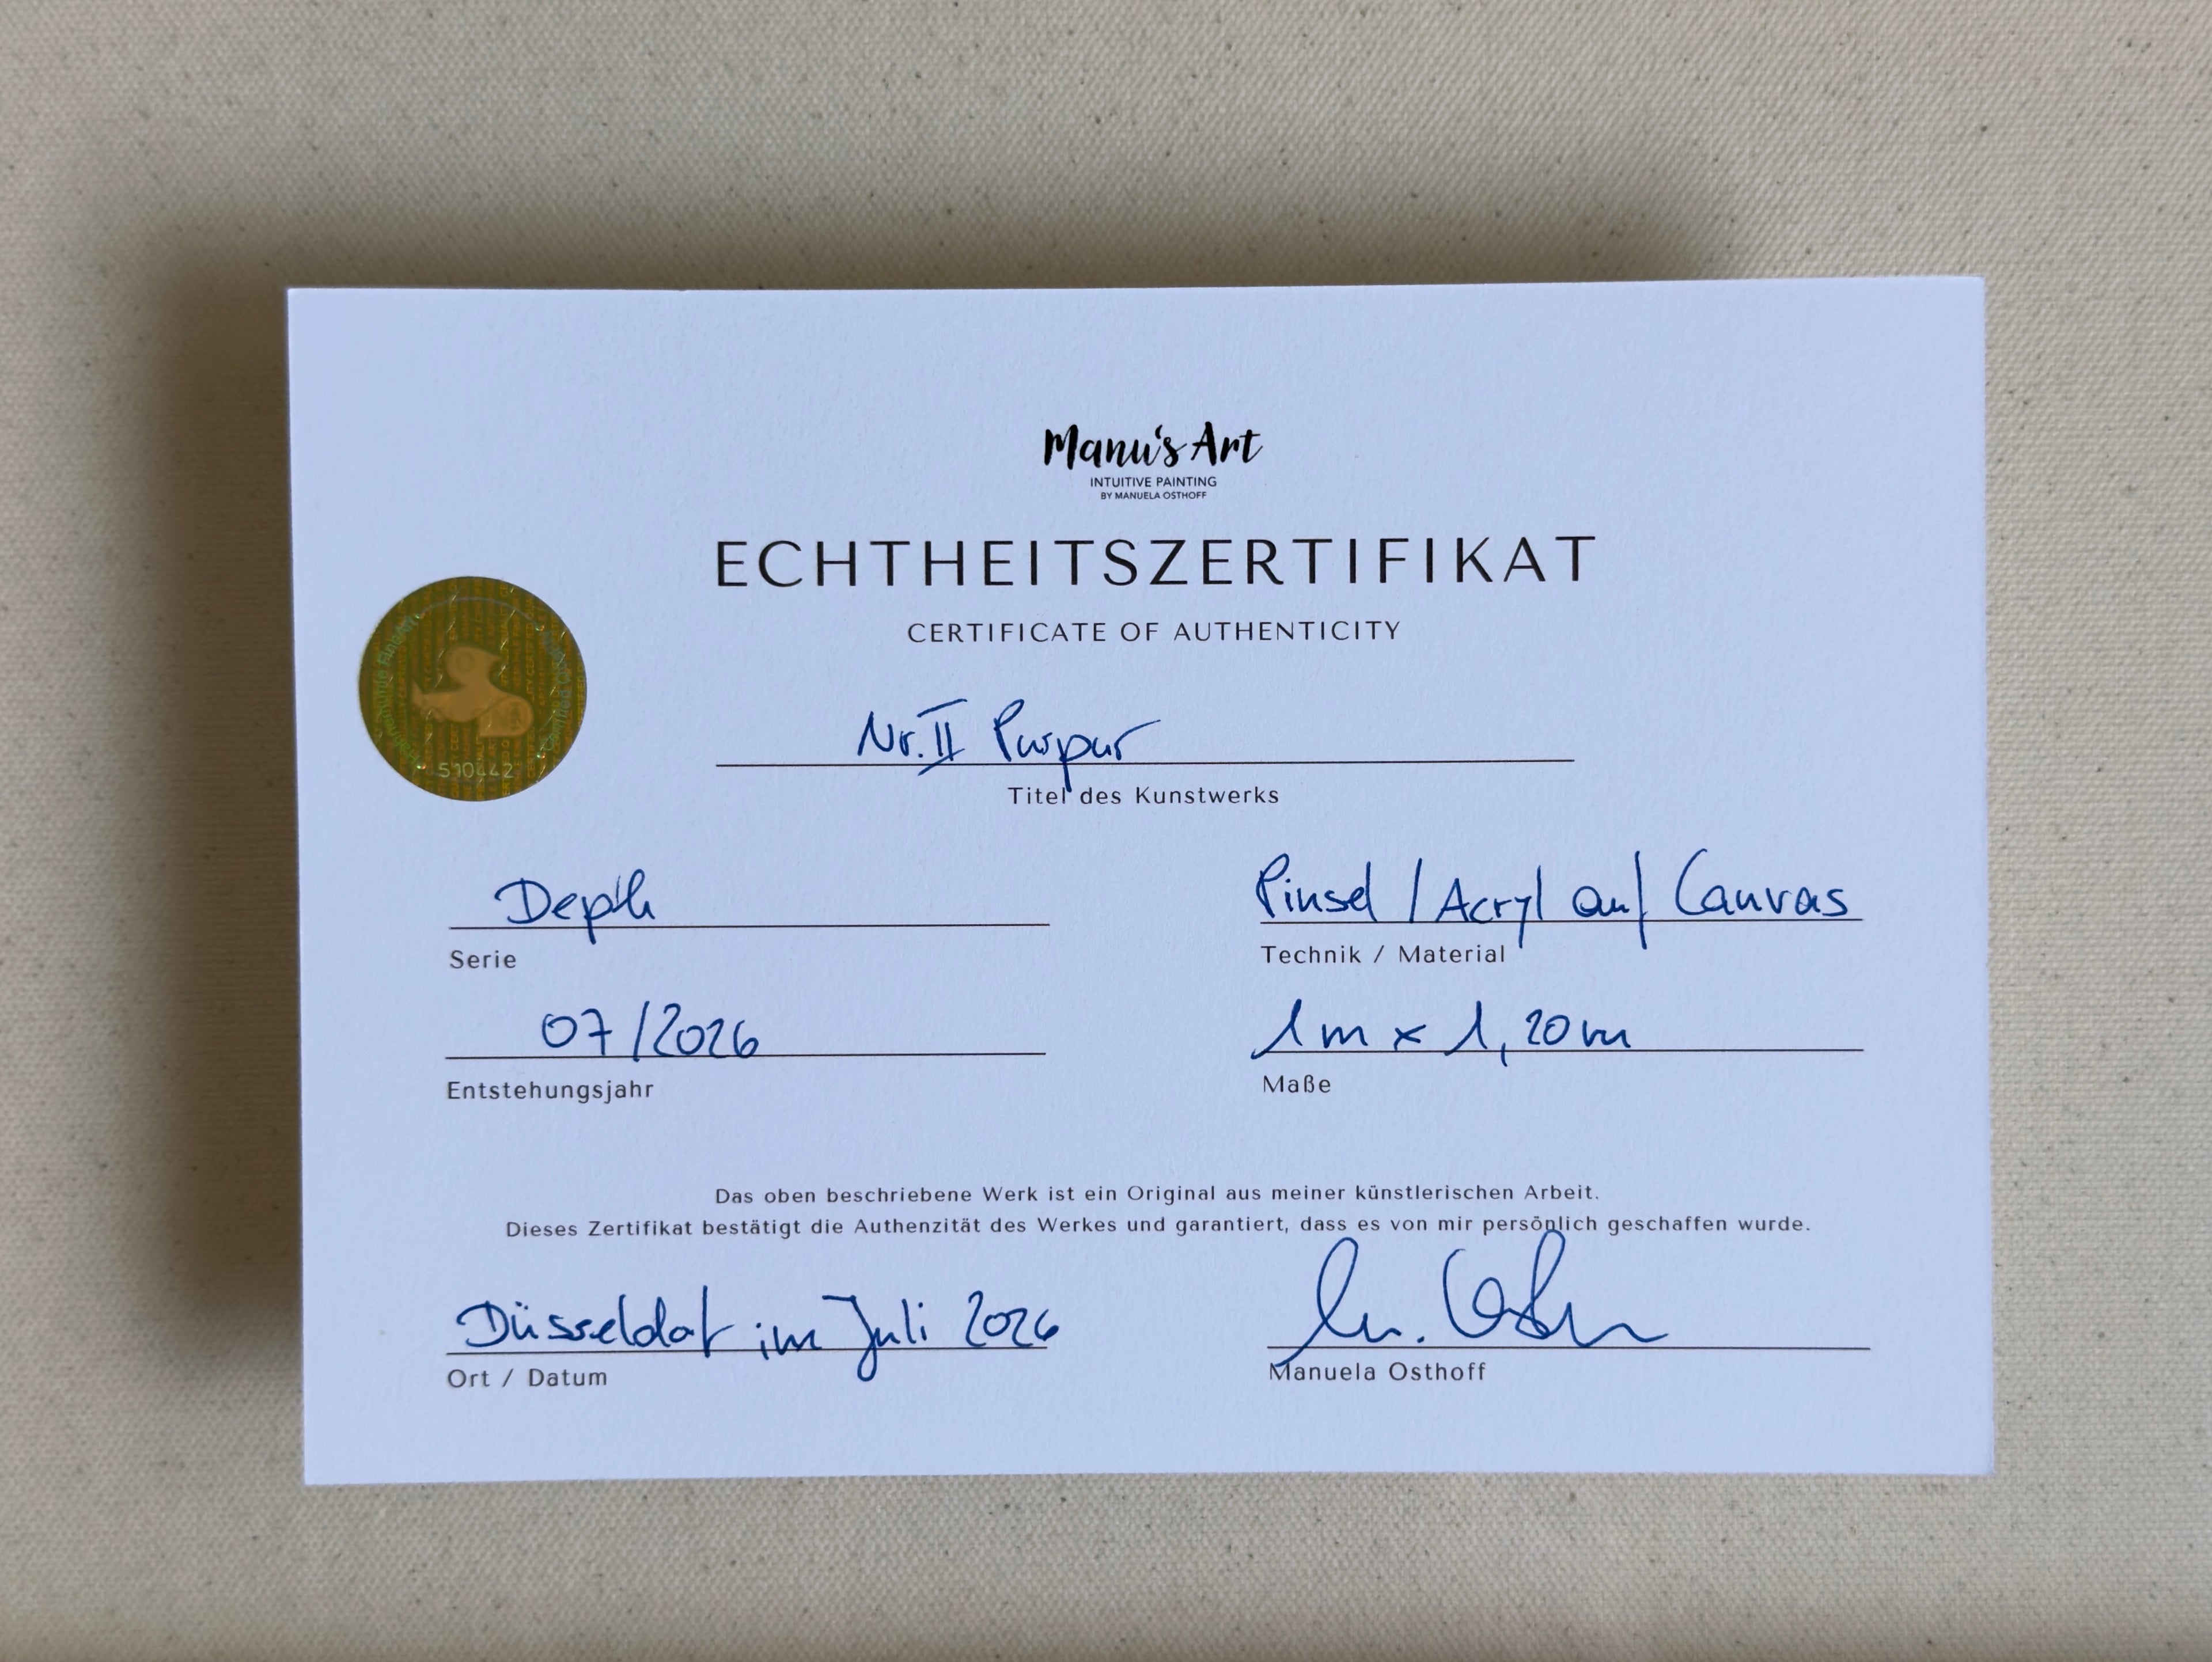 Manu's Art
INTUITIVE PAINTING
BY MANUELA OSTHOFF
ECHTHEITSZERTIFIKAT
CERTIFICATE OF AUTHENTICITY
510442
Nr. II Purpur
Titel des Kunstwerks
Depth
Serie
Pinsel / Acryl auf Canvas
Technik / Material
07/2026
Entstehungsjahr
1m x 1,20m
Maße
Das oben beschriebene Werk ist ein Original aus meiner künstlerischen Arbeit.
Dieses Zertifikat bestätigt die Authenzität des Werkes und garantiert, dass es von mir persönlich geschaffen wurde.
Düsseldorf im Juli 2026
Ort / Datum
Manuela Osthoff